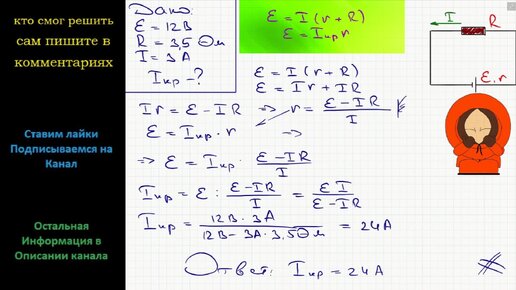 кто смог решить
сам пишите в
комментариях
Ставим лайки
Подписываемся на
Канал
Остальная
Информация в
Описании канала
Дано:
ℰ = 12 В
R = 3,5 Ом
I = 3 А
Iкр - ?
ℰ = I (r + R)
ℰ = Iкр r
ℰ = I (r + R)
ℰ = Ir + IR
Ir = ℰ - IR => r = (ℰ - IR) / I
ℰ = Iкр · r =>
=> ℰ = Iкр · (ℰ - IR) / I
Iкр = ℰ : (ℰ - IR) / I = ℰ I / (ℰ - IR)
Iкр = 12 В · 3 А / (12 В - 3 А · 3,5 Ом) = 24 А
Ответ: Iкр = 24 А
I
R
ℰ, r